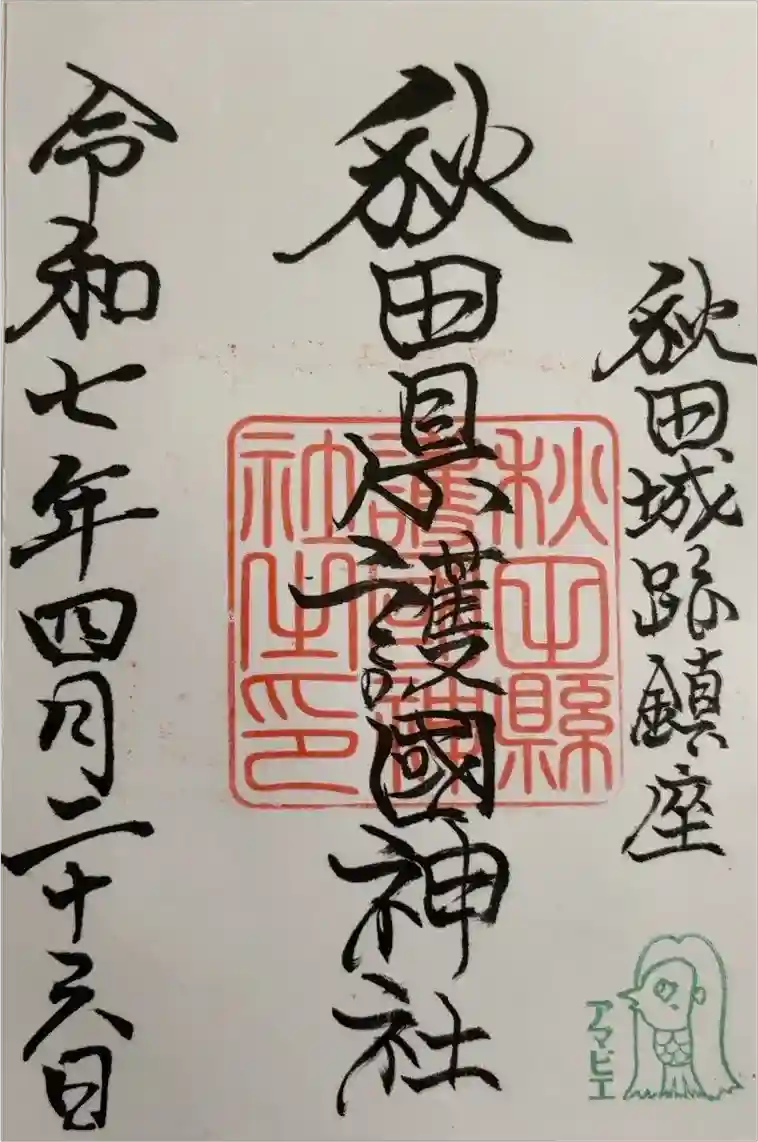 秋田城跡鎮座
アマビエ
秋田県護國神社
秋田縣
護國神
社之印
令和七年四月二十六日